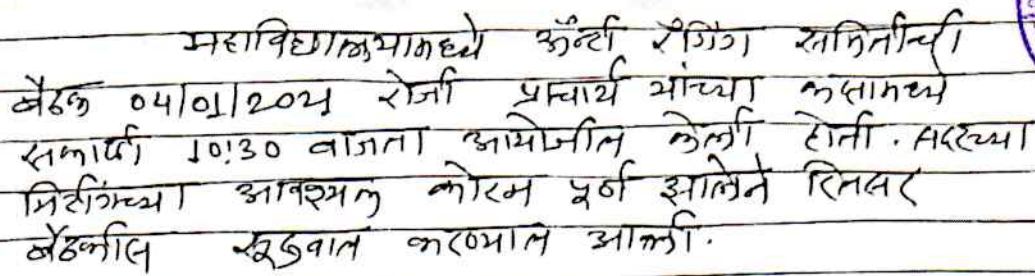 महाविद्यालयामध्ये अॅन्टी रॅगिंग समितीची
बैठक 04/01/2024 रोजी प्राचार्य यांच्या कक्षामध्ये
सकाळी 10:30 वाजता आयोजीत केली होती. सदरच्या
मिटींगच्या आवश्यक कोरम पूर्ण झालेने रितसर
बैठकीस सुरुवात करण्यात आली.